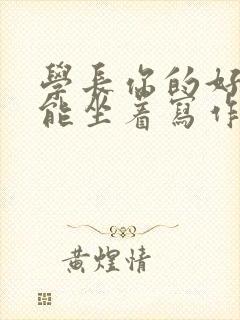 學長你的好
能坐着寫作
黃煌情